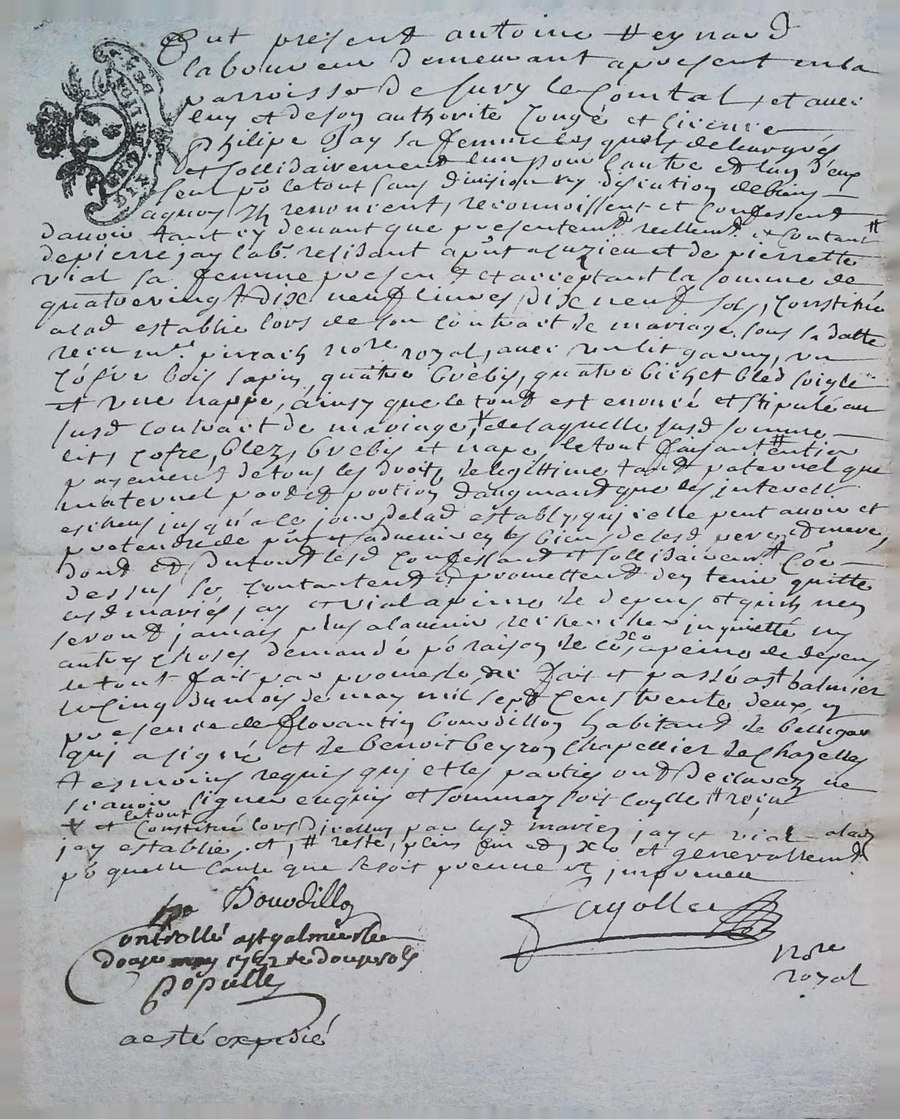 Out present antoine Heynard
laboureur demeurant apresent en la
parroisse de Sury le Comtal, et avec
luy et de son authorite Congé et licence
Philipe Jay sa femme lesquels de leur grés
et sollidairement l'un pour l'autre et l'un d'eux
seul po le tout sans division ny discution de biens
aquoy ils renoncent, reconnoissent et confessent
d'avoir tant cy devant que presentemt reellemt et contant #
de pierre jay labr. residant a et de pierrette
vial sa femme presents et acceptant la somme de
quatre vingt dix neuf livres dix neuf sols, Constitué
a lad establie lors de son contrait de mariage sous sa datte
receu me pirrach nore royal, avec un lit garny, un
Cofre bois sapin, quatre brebis, quatre bichet bled seigle
et une nappe, ainsy que le tout est enoncé et stipulé au
susd contrait de mariage, + de laquelle susd somme
lits cofre, blez, brebis et nape, le tout faisant # lentier
payement de tous les droits de legittime tant paternel que
maternel part et portion d'augmant que les interests
eschus jusqu'a ce jour de lad establie, qu'icelle peut avoir et
pretendre de present et advenir ez biens de sesd pere et mere,
dont et du tout lesd confessant et sollidairemt Coe
dessus se contantent et promettent d'en tenir quitte
lesd mariés jay et vial a peine de depens et qu'ils n'en
seront jamais plus a l'avenir recherchés inquiettés ny
autres choses demandé po raison de a peine de depens
le tout fait par promesse &c fait et passé a st balmier
le cinq du mois de may mil sept cent trente deux, en
presence de florantin bourdillon habitant de bellegarde
qui a signé et de benoit beyron chapellier de Chazelles
tesmoins requis qui et les parties ont declarez ne
scavoir signer enquis et sommez soit coylle # reçue
+ et le tout Constitué lors d'icelluy par lesd mariez jay et vial a lad
jay establie, et, # reste, plein et, xlo et generallement
po quelle cause que se soit preveue et impreveue
Bourdillon
Fayolle
nore
royal
Controllé a st galmier le
douze may 1732 re douze sols
Populle
a esté expedié